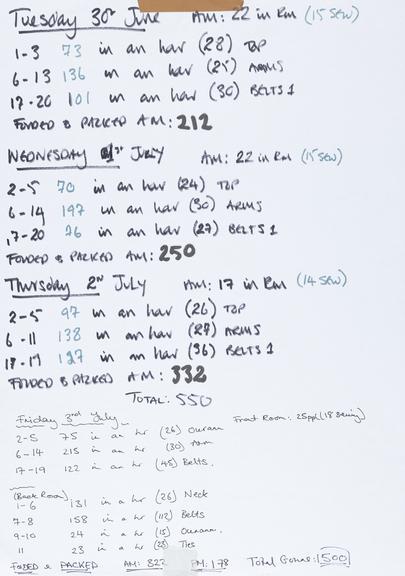 Tuesday 30th June AM: 22 in Rm (15 sew)
1-3 73 in an har (28) TOP
6-13 136 in an har (25) ARMS
17-20 101 in an har (30) BELTS 1
FOLDED & PACKED AM: 212
WEDNESDAY 1st JULY AM: 22 in Rm (15 sew)
2-5 70 in an har (24) TOP
6-14 197 in an har (30) ARMS
17-20 76 in an har (27) BELTS 1
FOLDED & PACKED AM: 250
Thursday 2nd July AM: 17 in Rm (14 sew)
2-5 97 in an har (26) TOP
6-11 138 in an har (27) ARMS
in an har (36) BELTS 1
FOLDED & PACKED AM: 332
TOTAL: 550
Friday 3rd July Front Room: 25ppl (18 Sewing)
2-5 75 in an hr (26)
6-14 215 in an hr (30) Arm
17-19 122 in an hr (45) Belts.
(Back Room)
1-6 131 in a hr (26) Neck
7-8 158 in a hr (112) Belts
9-10 24 in a hr (15)
11 23 in a hr Ties
FOLDED & PACKED AM: 322 PM: 178 Total Gowns: 1500